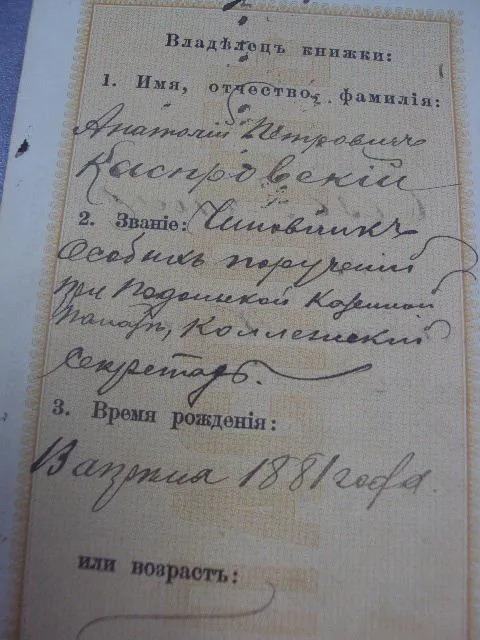 Владѣлецъ книжки:
1. Имя, отчество, фамилія:
Анатолій Петровичъ
Каспровскій
2. Званіе: Чиновникъ
Особыхъ порученій
при Казенной
Палатѣ, Коллежскій
Секретарь.
3. Время рожденія:
13 апрѣля 1881 года.
или возрастъ: